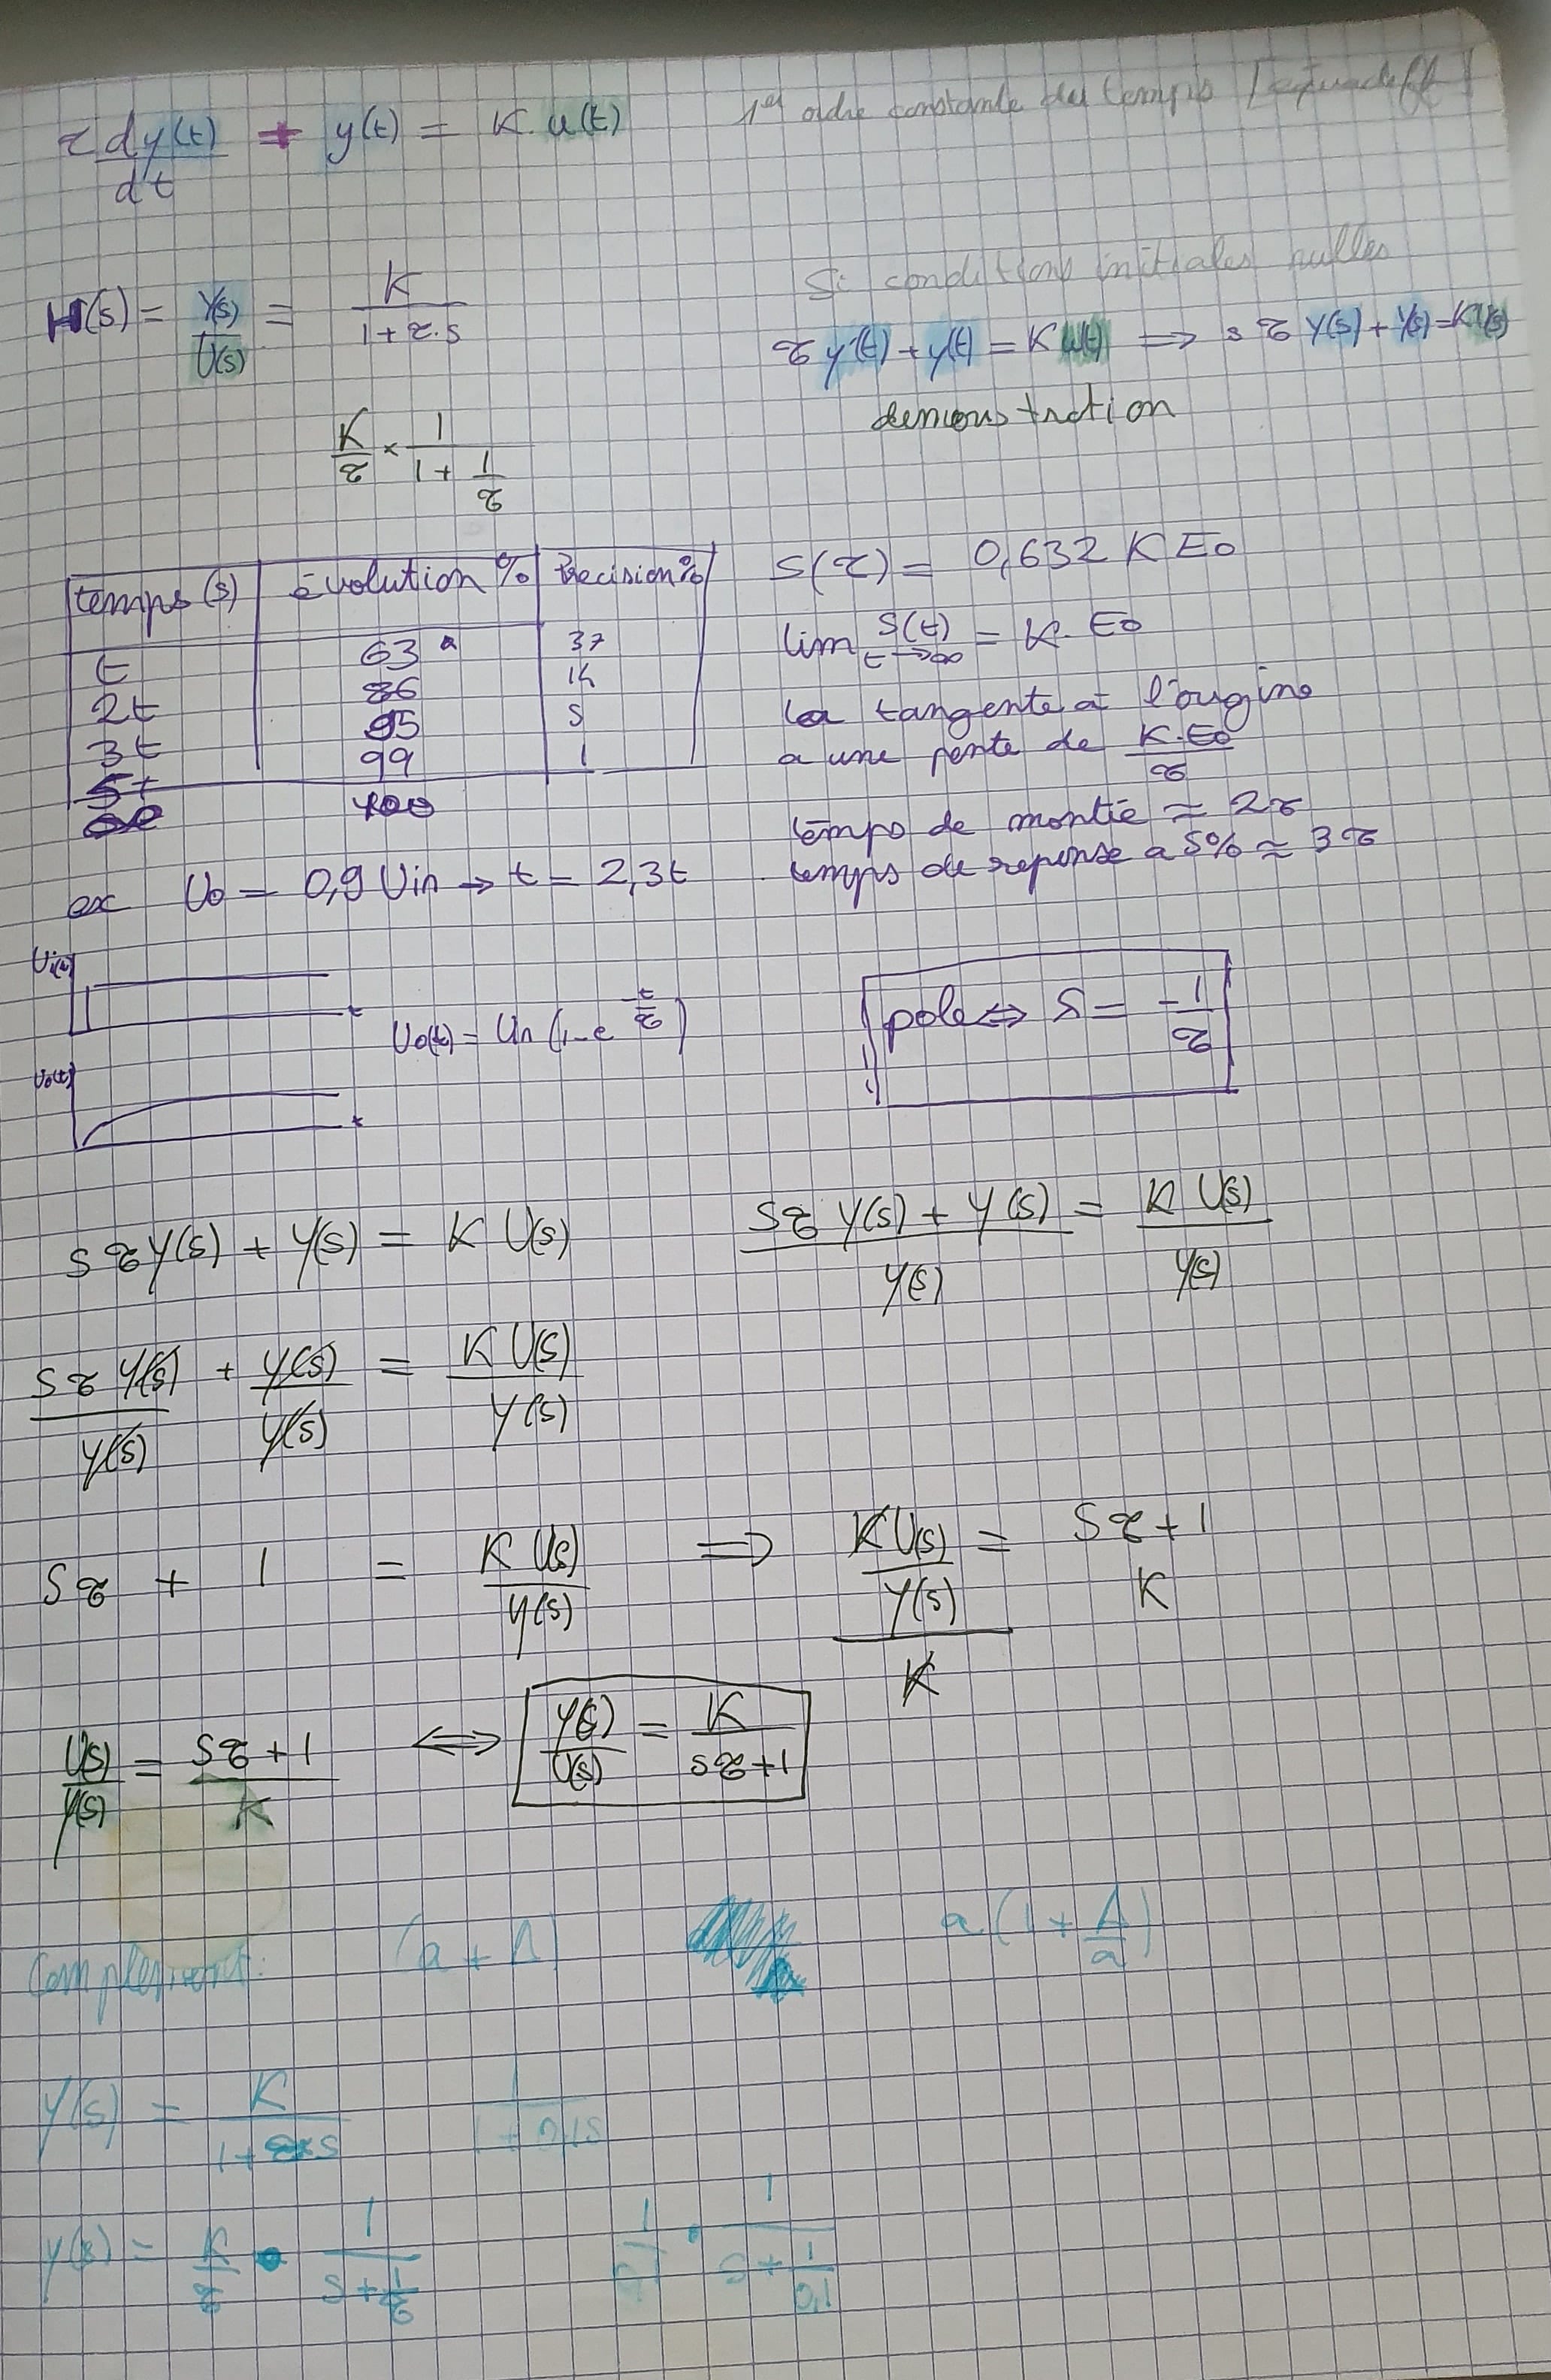 τ dy(t)/dt + y(t) = K. u(t)
1er ordre constante du temps
H(s) = Y(s)/U(s) = K/(1+τ.s)
Si conditions initiales nulles
τ y'(t) + y(t) = K u(t) ⟹ s τ Y(s) + Y(s) = K U(s)
demonstration
K/τ × 1/(1 + 1/τ)
temps (s) évolution % Précision %
t 63 37
2t 86 14
3t 95 5
5t 99 1
∞ 100
S(τ) = 0,632 K E0
lim t→∞ S(t) = K. E0
la tangente à l'origine
a une pente de K.E0/τ
temps de montée ≈ 2τ
temps de reponse a 5% ≈ 3τ
ex U0 = 0,9 Uin → t = 2,3t
Ui(t)
t
U0(t) = Un (1-e^(-t/τ))
U0(t)
t
pole ⇔ S = -1/τ
sτY(s) + Y(s) = K U(s)
(sτ Y(s) + Y(s))/Y(s) = K U(s)/Y(s)
sτ Y(s)/Y(s) + Y(s)/Y(s) = K U(s)/Y(s)
sτ + 1 = K U(s)/Y(s) ⟹ (K U(s)/Y(s))/K = sτ+1 K
U(s)/Y(s) = (sτ+1)/K ⟺ Y(s)/U(s) = K/(sτ+1)
Complement: (a + Δ) a (1 + Δ/a)
Y(s) = K/(1+τ×s) 1/(1+0,1s)
Y(s) = K/τ • 1/(s+1/τ) 1/0,1 • 1/(s+1/0,1)